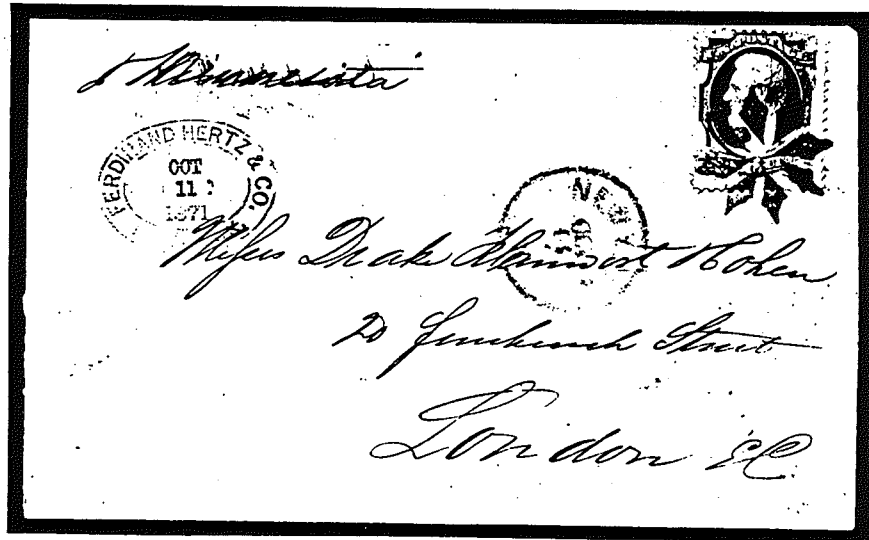 p Minnesota
FERDINAND HERTZ & CO.
OCT
11
1871
NEW
Messrs Drake Kleinwort & Cohen
20 Fenchurch Street
London EC